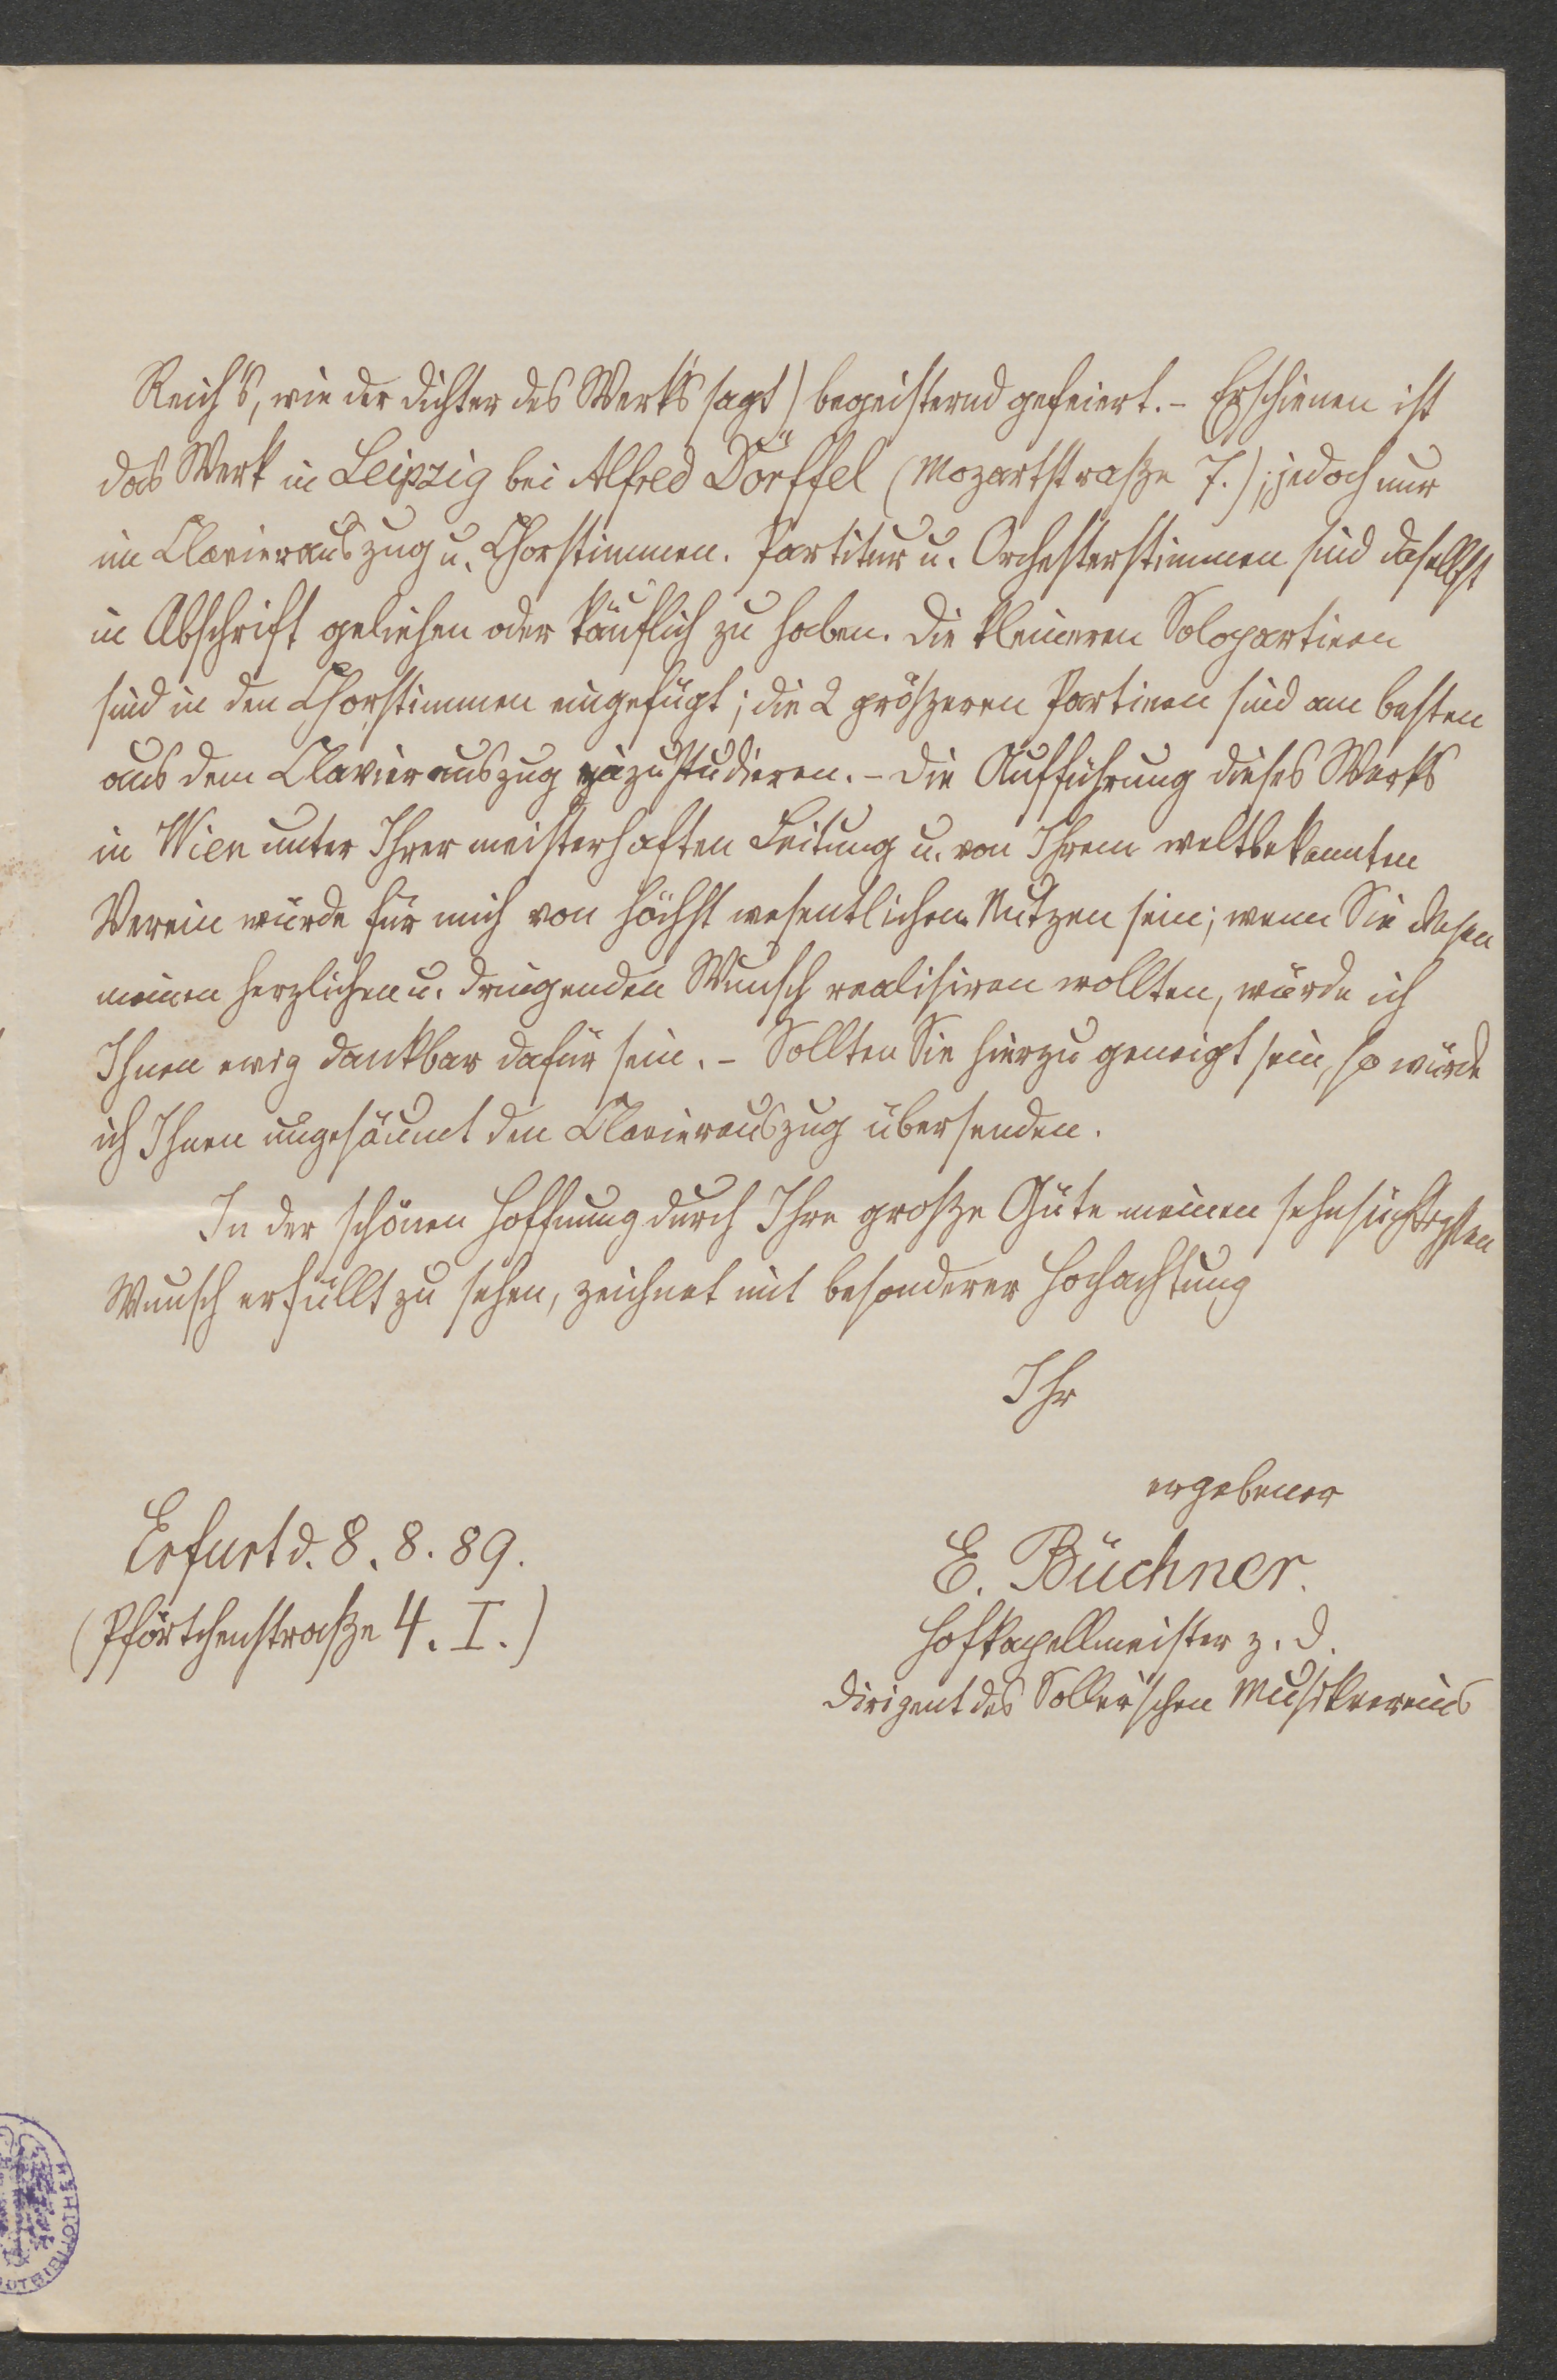 Reich's, wie der Dichter des Werks sagt) begeisternd gefeiert. – Erschienen ist
das Werk in Leipzig bei Alfred Dörffel (Mozartstraße 7.); jedoch nur
im Clavierauszug u. Chorstimmen. Partitur u. Orchesterstimmen sind daselbst
in Abschrift geliehen oder käuflich zu haben. Die kleineren Solopartieen
sind in den Chorstimmen eingefügt; die 2 größeren Partieen sind am besten
aus dem Clavierauszug zu studieren. – Die Aufführung dieses Werks
in Wien unter Ihrer meisterhaften Leitung u. von Ihrem weltbekannten
Verein würde für mich von höchst wesentlichem Nutzen sein; wenn Sie diesen
meinen herzlichen u. dringenden Wunsch realisiren wollten, würde ich
Ihnen ewig dankbar dafür sein. – Sollten Sie hierzu geneigt sein, so würde
ich Ihnen ungesäumt den Clavierauszug übersenden.
In der schönen Hoffnung durch Ihre große Güte meinen sehnsüchtigsten
Wunsch erfüllt zu sehen, zeichnet mit besonderer Hochachtung
Ihr
ergebener
E. Büchner.
Hofkapellmeister z. D.
Dirigent des Soller'schen Musikvereins
Erfurt d. 8. 8. 89.
(Pförtchenstraße 4. I.)